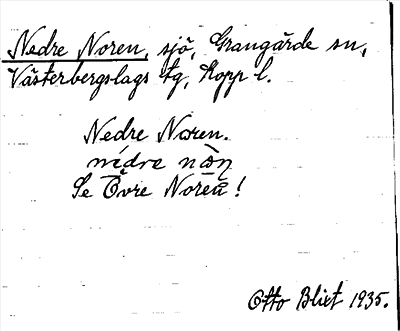 Nedre Noren, sjö, Grangärde sn,
Västerbergslags tg, Kopp l.
Nedre Noren.
Se Övre Noren!
Otto Blixt 1935.